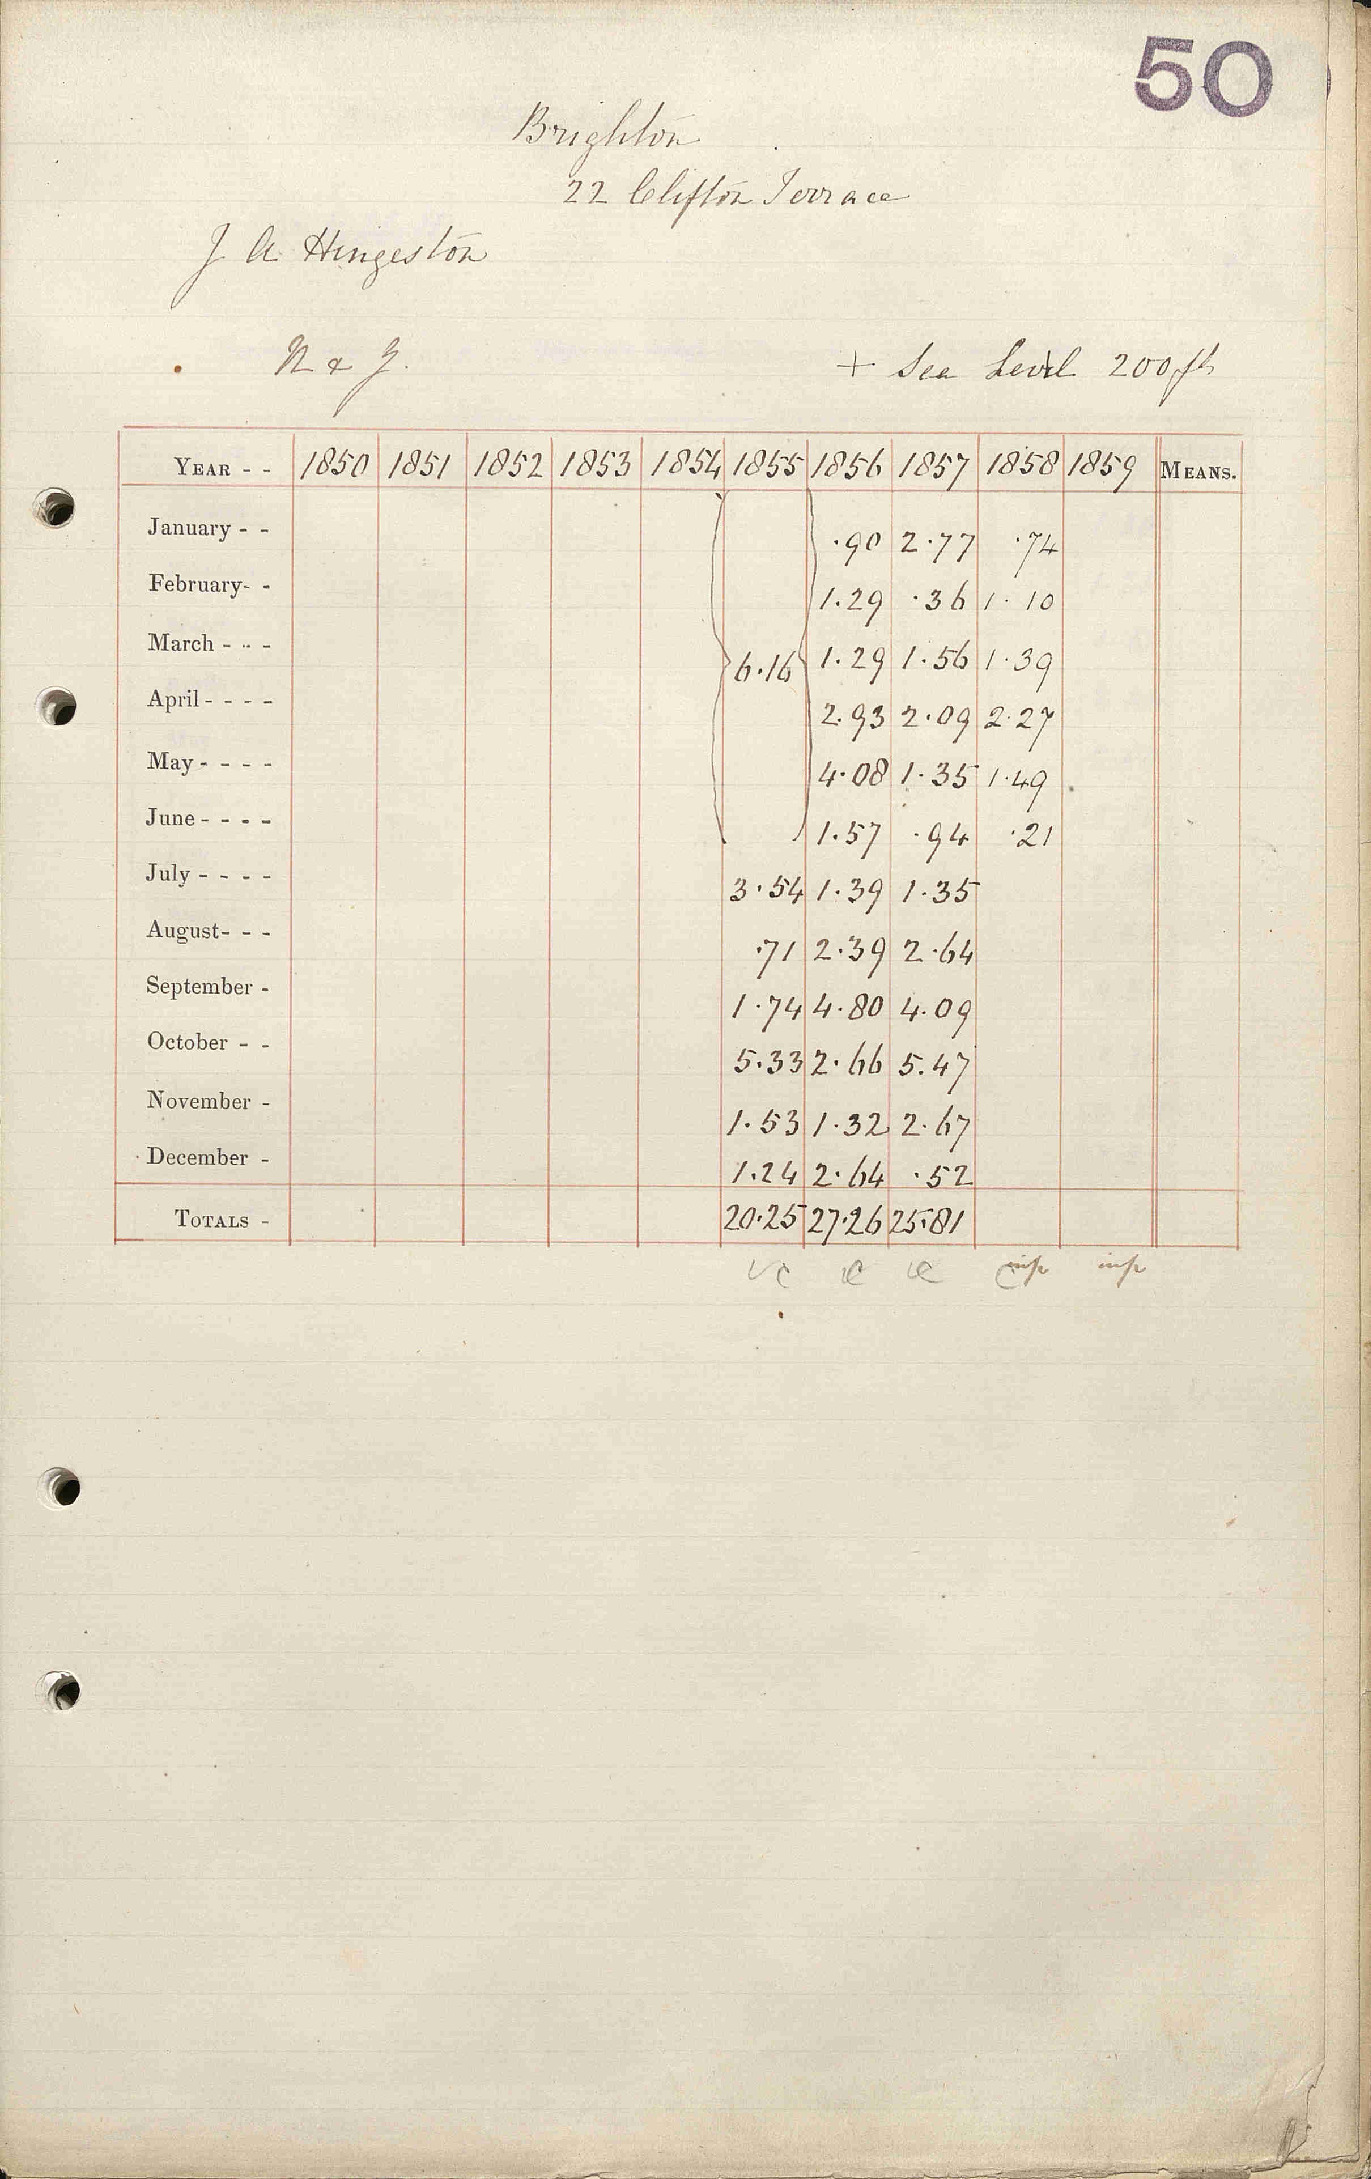 50
Brighton
22 Clifton Terrace
J A Hingeston
N & Z.
+ Sea Level 200 ft
YEAR - - 1850 1851 1852 1853 1854 1855 1856 1857 1858 1859 MEANS.
January - - .90 2.77 .74
February- - 1.29 .36 1.10
March - - - 6.16 1.29 1.56 1.39
April - - - - 2.93 2.09 2.27
May - - - - 4.08 1.35 1.49
June - - - - 1.57 .94 .21
July - - - - 3.54 1.39 1.35
August- - - .71 2.39 2.64
September - 1.74 4.80 4.09
October - - 5.33 2.66 5.47
November - 1.53 1.32 2.67
December - 1.24 2.64 .52
TOTALS - 20.25 27.26 25.81